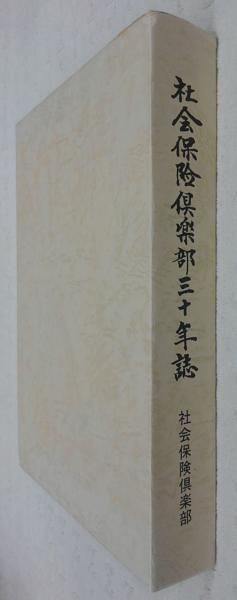 社会保険倶楽部三十年誌
社会保険倶楽部